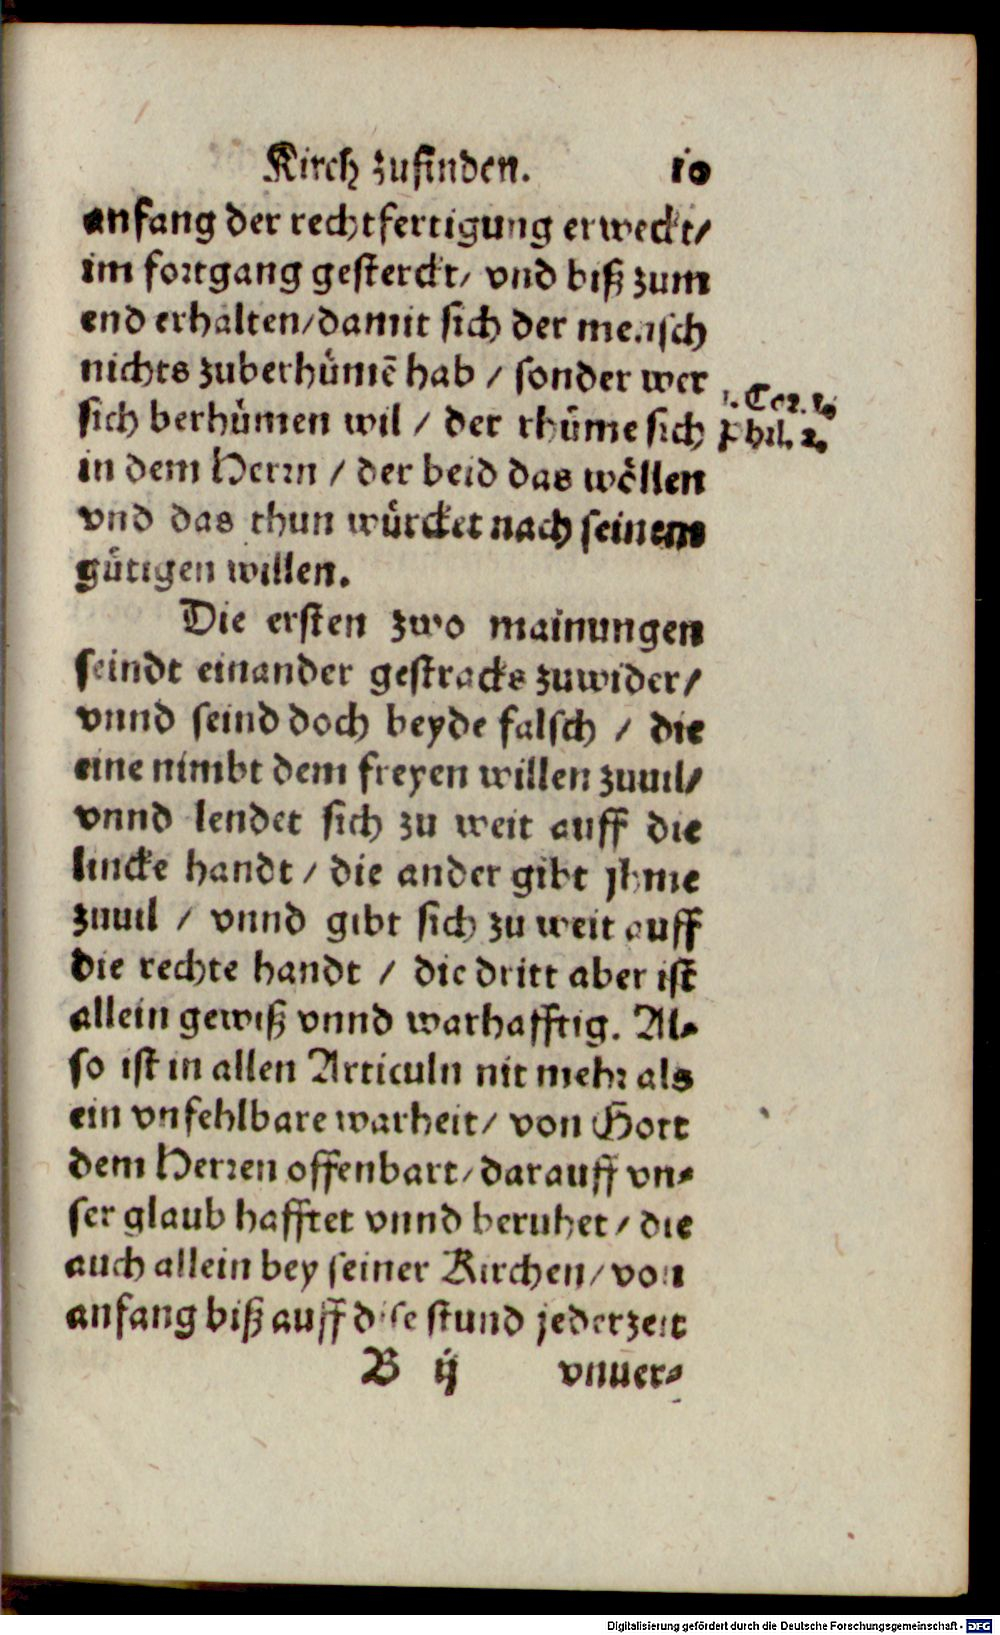 Kirch zufinden. 10
anfang der rechtfertigung erweckt/
im fortgang gesterckt/ vnd biß zum
end erhalten/damit sich der mensch
nichts zuberhuͤmē hab / sonder wer
sich berhuͤmen wil / der rhuͤme sich
1. Cor. 1.
Phil. 2.
in dem Herrn / der beid das woͤllen
vnd das thun wuͤrcket nach seinem
guͤtigen willen.
Die ersten zwo mainungen
seindt einander gestracks zuwider/
vnnd seind doch beyde falsch / die
eine nimbt dem freyen willen zuuil/
vnnd lendet sich zu weit auff die
lincke handt / die ander gibt jhme
zuuil / vnnd gibt sich zu weit auff
die rechte handt / die dritt aber ist
allein gewiß vnnd warhafftig. Al-
so ist in allen Articuln nit mehr als
ein vnfehlbare warheit/ von Gott
dem Herren offenbart/ darauff vn-
ser glaub hafftet vnnd beruhet/ die
auch allein bey seiner Kirchen/ von
anfang biß auff dise stund jederzeit
B ij vnuer-
Digitalisierung gefördert durch die Deutsche Forschungsgemeinschaft - DFG